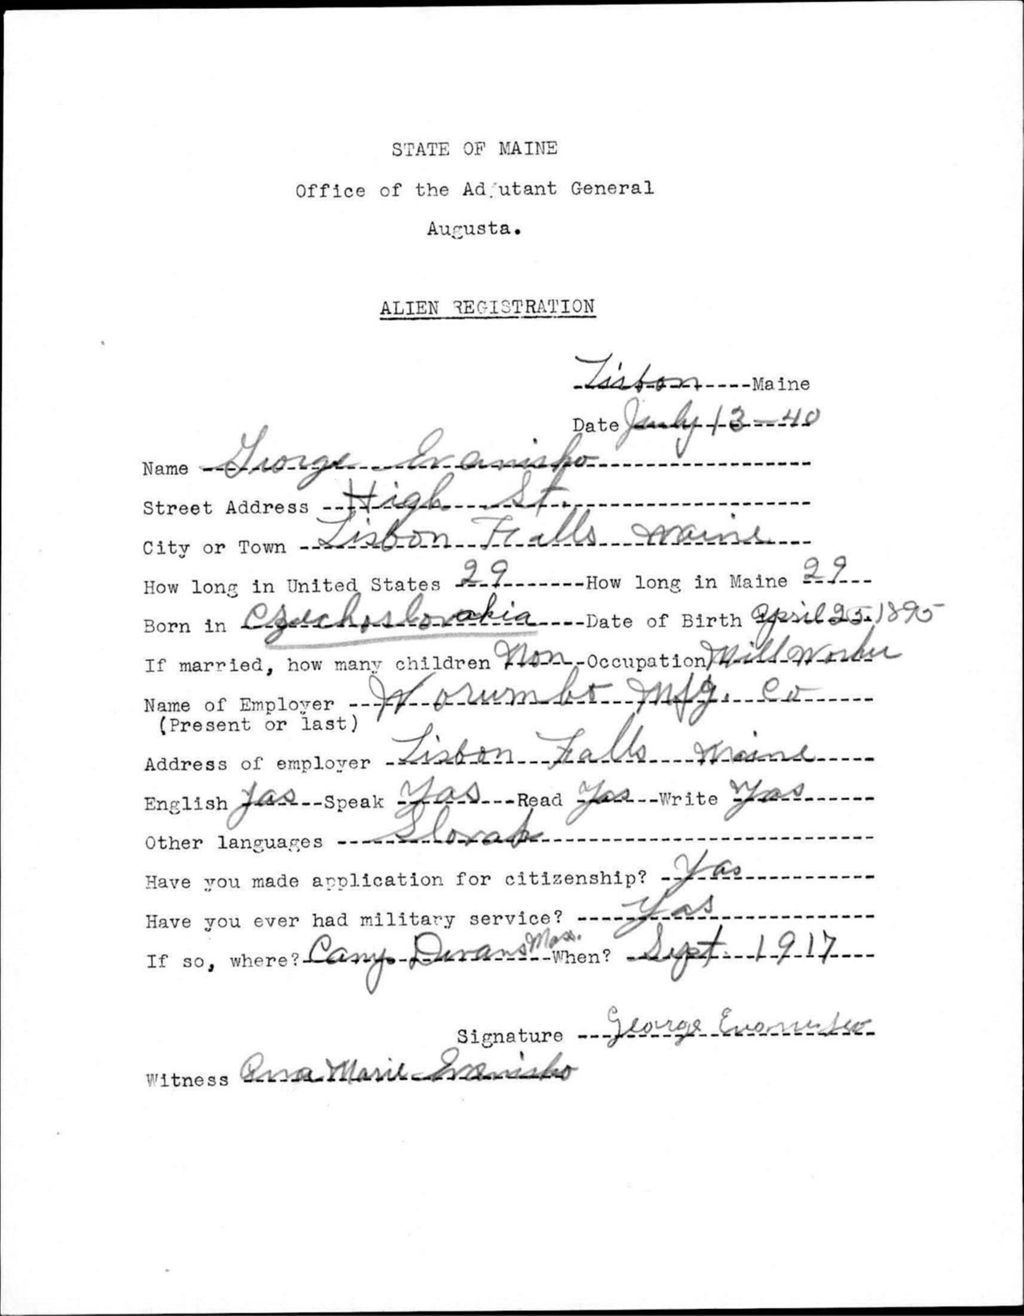 STATE OF MAINE
Office of the Adjutant General
Augusta.
ALIEN REGISTRATION
Lisbon Maine
Date July 13-40
Name George Evanisko
Street Address High St.
City or Town Lisbon Falls Maine
How long in United States 29 How long in Maine 29
Born in Czechoslovakia Date of Birth April 25, 1895
If married, how many children Non Occupation Mill Worker
Name of Employer Worumbo Mfg. Co
(Present or last)
Address of employer Lisbon Falls Maine
English Yas Speak Yas Read Yas Write Yas
Other languages Slovak
Have you made application for citizenship? Yas
Have you ever had military service? Yas
If so, where? Camp Devans Mass. When? Sept. 1917
Signature George Evanisko
Witness Anna Marie Evanisko